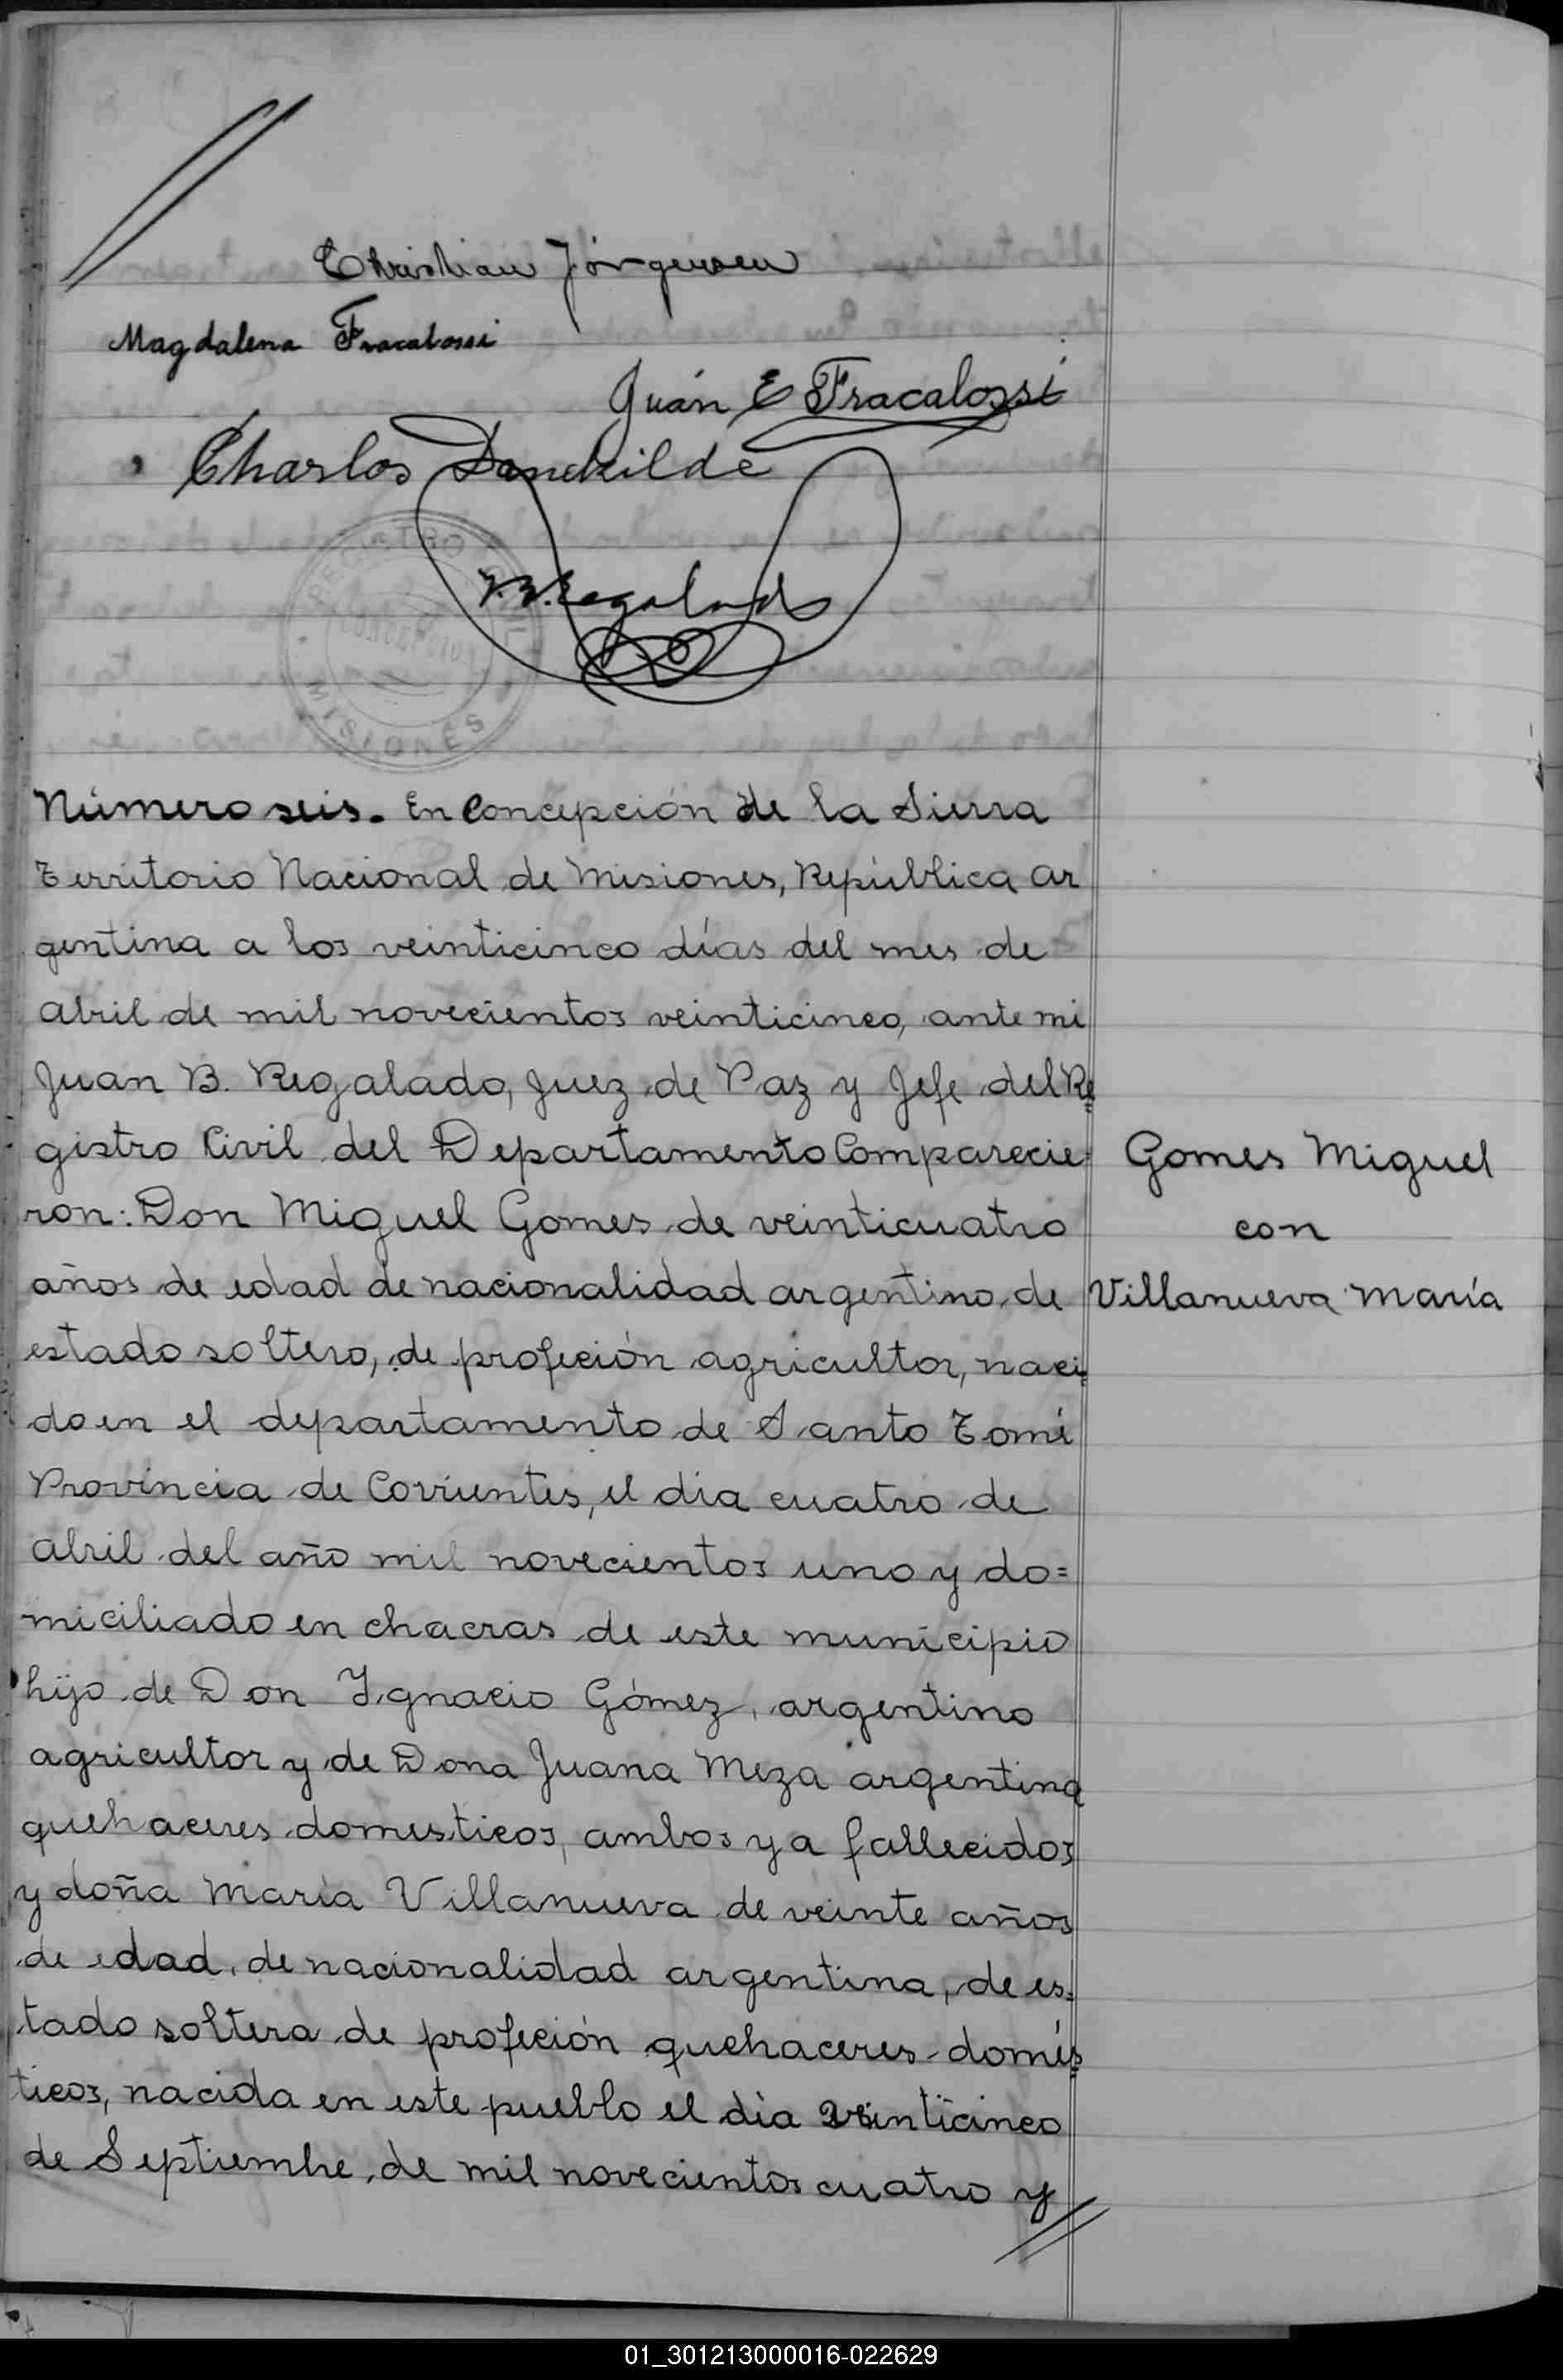 Christian Jörgensen
Magdalena Fracalossi
Juán E Fracalossi
Charlos Danekilde
J.B. Regalado
REGISTRO CIVIL
MISIONES
Número seis. En Concepción de la Sierra
Territorio Nacional de Misiones, República Ar
gentina a los veinticinco días del mes de
Abril de mil novecientos veinticinco, ante mi
Juan B. Regalado, Juez de Paz y Jefe del Re=
gistro Civil del Departamento Comparecie
ron: Don Miguel Gomes de veinticuatro
años de edad de nacionalidad argentino, de
estado soltero, de profeción agricultor, naci=
do en el departamento de Santo Tomé
Provincia de Corrientes, el dia cuatro de
Abril del año mil novecientos uno y do=
miciliado en chacras de este municipio
hijo de Don Ignacio Gómez, argentino
agricultor y de Dona Juana Meza argentina
quehaceres domesticos, ambos ya fallecidos
y doña María Villanueva de veinte años
de edad, de nacionalidad argentina, de es=
tado soltera de profeción quehaceres domés=
ticos, nacida en este pueblo el día veinticinco
de Septiembre, de mil novecientos cuatro y
Gomes Miguel
con
Villanueva María
01_301213000016-022629